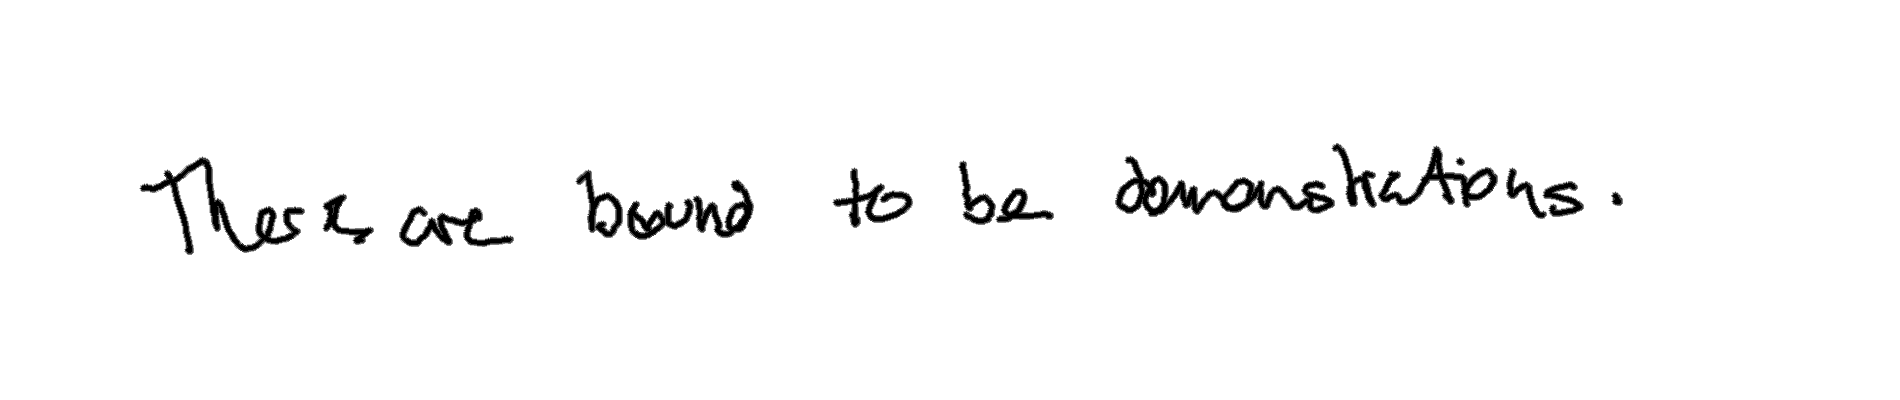 There are bound to be demonstrations.